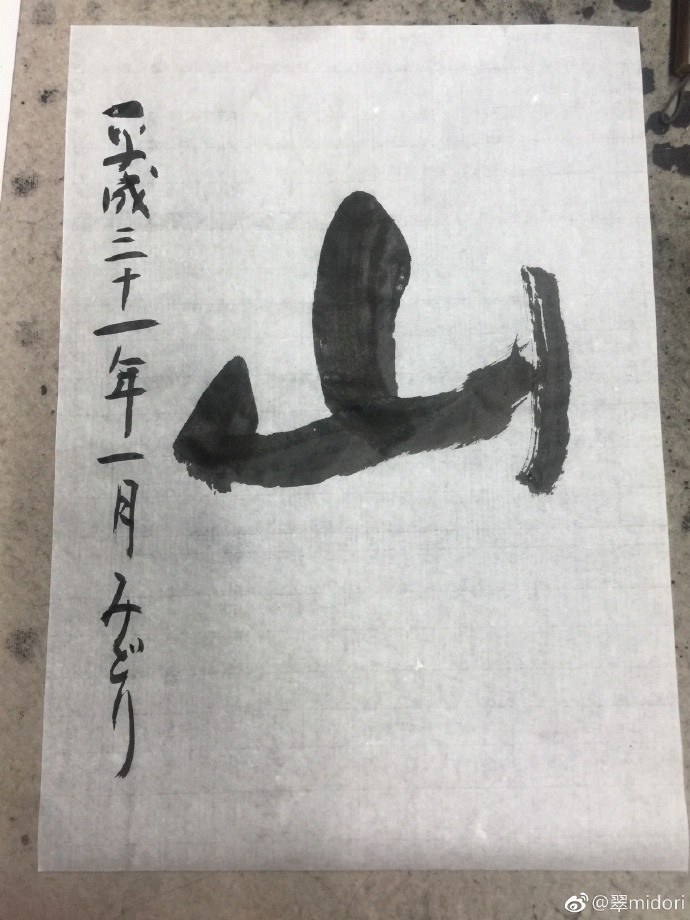 山
平成三十一年一月みどり
@翠midori